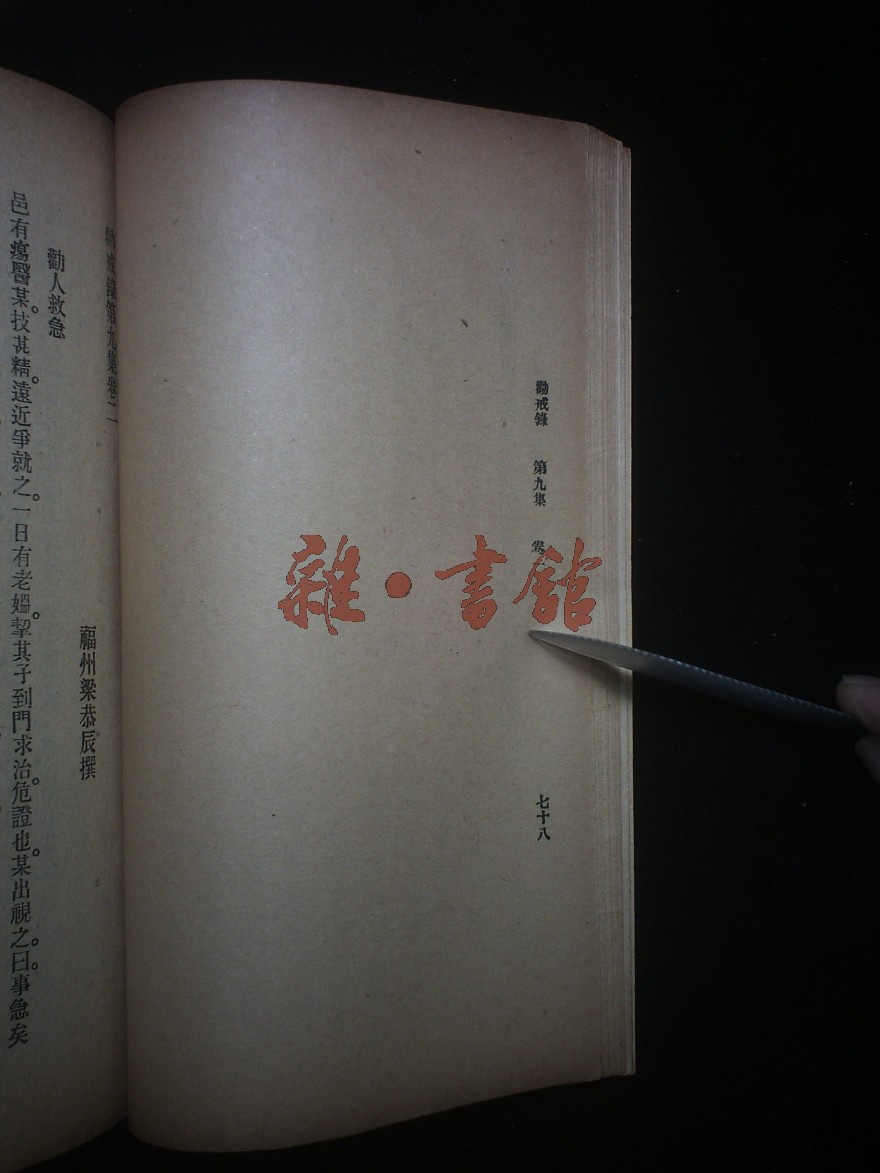 勸戒錄 第九集 卷
七十八
雜·書館
戒錄第九集卷二
福州梁恭辰撰
勸人救急
邑有瘍醫某。技甚精。遠近爭就之。一日有老嫗。挈其子到門求治。危證也。某出視之。曰。事急矣